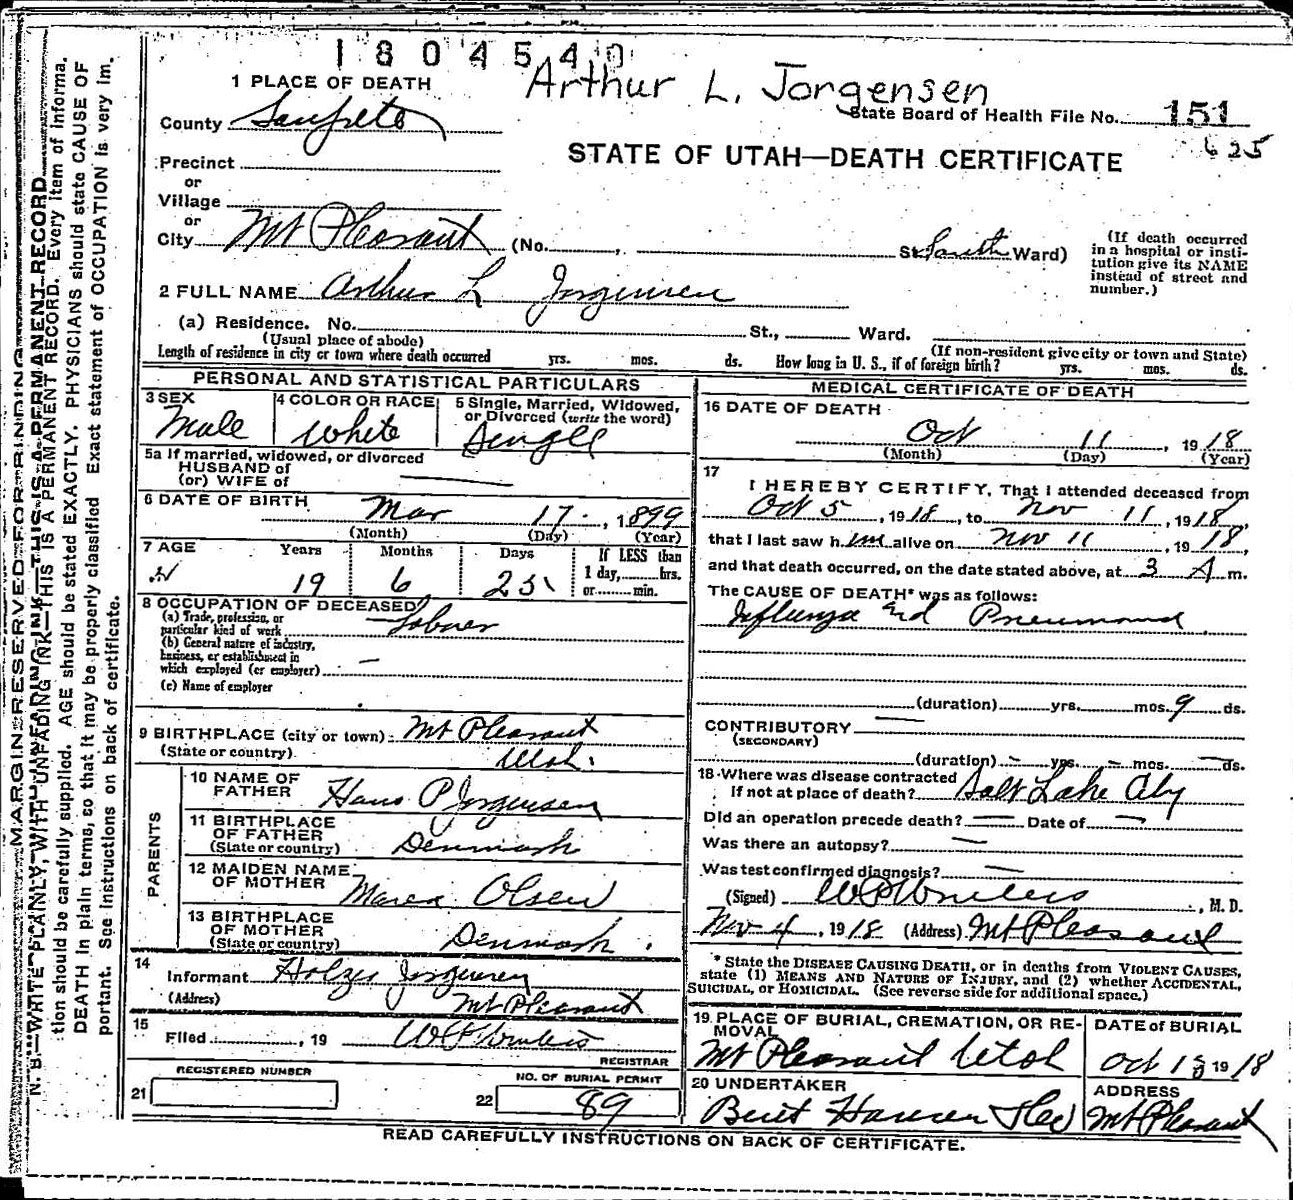 1804540
Arthur L. Jorgensen
1 PLACE OF DEATH
State Board of Health File No. 151
625
County Sanpete
STATE OF UTAH—DEATH CERTIFICATE
Precinct
or
Village
or
City Mt Pleasant (No. , St. South Ward)
(If death occurred
in a hospital or insti-
tution give its NAME
instead of street and
number.)
2 FULL NAME Arthur L Jorgensen
(a) Residence. No. St., Ward.
(Usual place of abode)
(If non-resident give city or town and State)
Length of residence in city or town where death occurred yrs. mos. ds. How long in U. S., if of foreign birth? yrs. mos. ds.
PERSONAL AND STATISTICAL PARTICULARS
3 SEX
Male
4 COLOR OR RACE
White
5 Single, Married, Widowed,
or Divorced (write the word)
Single
5a If married, widowed, or divorced
HUSBAND of
(or) WIFE of
6 DATE OF BIRTH Mar 17, 1899
(Month) (Day) (Year)
7 AGE Years Months Days If LESS than
19 6 25 1 day, hrs.
or min.
8 OCCUPATION OF DECEASED
(a) Trade, profession, or
particular kind of work Laborer
(b) General nature of industry,
business, or establishment in
which employed (or employer) —
(c) Name of employer
9 BIRTHPLACE (city or town) Mt Pleasant
(State or country) Utah.
PARENTS
10 NAME OF
FATHER Hans P Jorgensen
11 BIRTHPLACE
OF FATHER
(State or country) Denmark
12 MAIDEN NAME
OF MOTHER Maren Olsen
13 BIRTHPLACE
OF MOTHER
(State or country) Denmark.
14
Informant Holger Jorgensen
(Address) Mt Pleasant
15
Filed , 19
REGISTRAR
REGISTERED NUMBER
21
NO. OF BURIAL PERMIT
22 89
MEDICAL CERTIFICATE OF DEATH
16 DATE OF DEATH
Oct 11, 1918
(Month) (Day) (Year)
17
I HEREBY CERTIFY, That I attended deceased from
Oct 5, 1918, to Nov 11, 1918,
that I last saw him alive on Nov 11, 1918,
and that death occurred, on the date stated above, at 3 A m.
The CAUSE OF DEATH* was as follows:
Influenza and Pneumonia
(duration) yrs. mos. 9 ds.
CONTRIBUTORY —
(SECONDARY)
(duration) — yrs. — mos. — ds.
18 Where was disease contracted
If not at place of death? Salt Lake City
Did an operation precede death? — Date of —
Was there an autopsy? —
Was test confirmed diagnosis? —
(Signed) , M. D.
Nov 4, 1918 (Address) Mt Pleasant
* State the DISEASE CAUSING DEATH, or in deaths from VIOLENT CAUSES,
state (1) MEANS AND NATURE OF INJURY, and (2) whether ACCIDENTAL,
SUICIDAL, or HOMICIDAL. (See reverse side for additional space.)
19 PLACE OF BURIAL, CREMATION, OR RE-
MOVAL
Mt Pleasant Utah
DATE of BURIAL
Oct 13 1918
20 UNDERTAKER
Hansen
ADDRESS
Mt Pleasant
READ CAREFULLY INSTRUCTIONS ON BACK OF CERTIFICATE.
MARGIN RESERVED FOR BINDING
N. B.—WRITE PLAINLY, WITH UNFADING INK—THIS IS A PERMANENT RECORD. Every item of informa-
tion should be carefully supplied. AGE should be stated EXACTLY. PHYSICIANS should state CAUSE OF
DEATH in plain terms, so that it may be properly classified Exact statement of OCCUPATION is very im-
portant. See instructions on back of certificate.